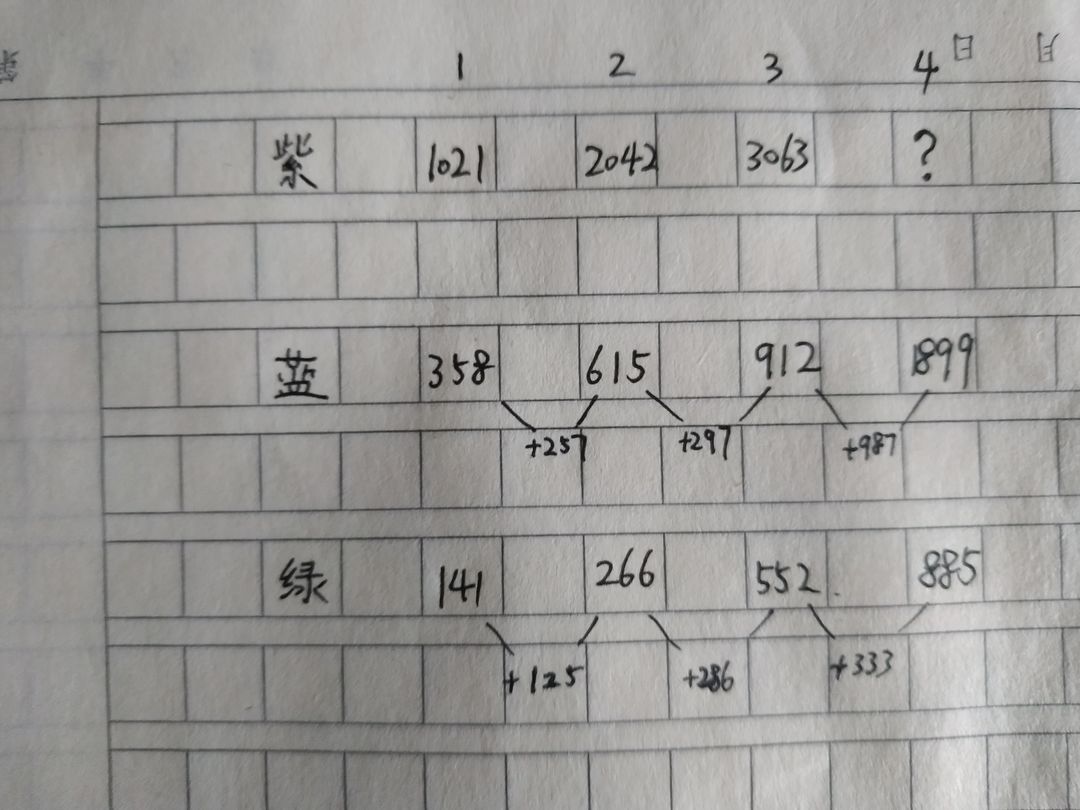 1 2 3 4 日 月
紫 1021 2042 3063 ?
蓝 358 615 912 1899
+257 +297 +987
绿 141 266 552 885
+125 +286 +333